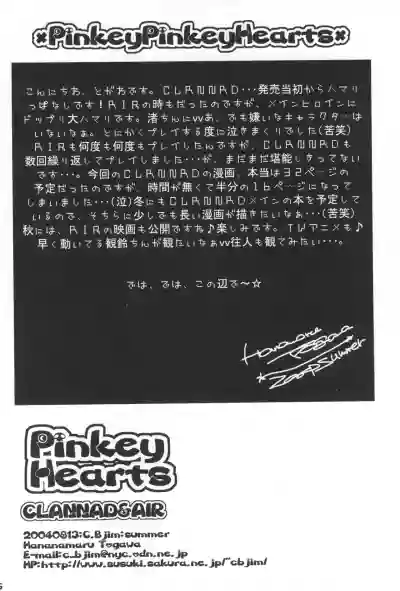 *PinkeyPinkeyHearts*
こんにちわ、とがわです。CLANNAD・・・発売当初からハマリ
っぱなしです!AIRの時もだったのですが、メインヒロインに
ドップリ大ハマリです。渚ちんにvvあ、でも嫌いなキャラクターは
いないなぁ。とにかくプレイする度に泣きまくりでした(苦笑)
AIRも何度も何度もプレイしたんですが、CLANNADも
数回繰り返してプレイしました・・・が、まだまだ堪能しきってない
です・・・。今回のCLANNADの漫画、本当は32ページの
予定だったのですが、時間が無くて半分の16ページになって
しまいました・・・(泣)冬にもCLANNADメインの本を予定して
いるので、そちらに少しでも長い漫画が描きたいなぁ・・・(苦笑)
秋には、AIRの映画も公開ですね♪楽しみです。TVアニメも♪
早く動いてる観鈴ちんが観たいなぁvv往人も観てみたい・・・。
では、では、この辺で~☆
Pinkey
Hearts
CLANNAD&AIR
20040813:C.Bjim:summer
Hananamaru Togawa
E-mail:c_bjim@nyc.odn.ne.jp
HP:http://www.susuki.sakura.ne.jp/~cbjim/